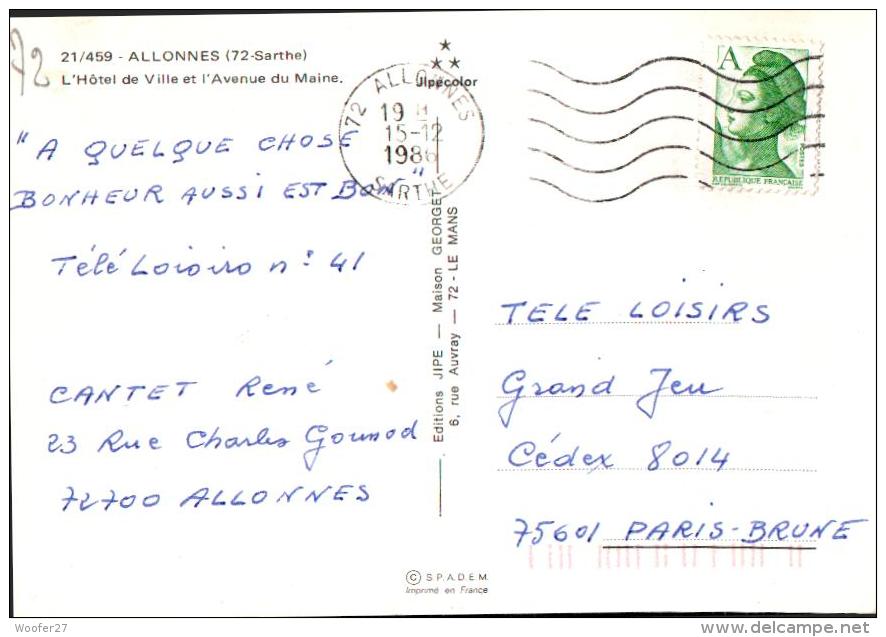 72
21/459 - ALLONNES (72-Sarthe)
L'Hôtel de Ville et l'Avenue du Maine.
Jipécolor
72 ALLONNES
19 H
15-12
1986
SARTHE
A
POSTES
REPUBLIQUE FRANÇAISE
"A QUELQUE CHOSE
BONHEUR AUSSI EST BON"
Télé Loisirs n° 41
CANTET René
23 Rue Charles Gounod
72700 ALLONNES
Editions JIPE — Maison GEORGET
6, rue Auvray — 72 - LE MANS
TELE LOISIRS
Grand Jeu
Cédex 8014
75601 PARIS-BRUNE
© S.P.A.D.E.M.
Imprimé en France
Woofer27
delcampe.net